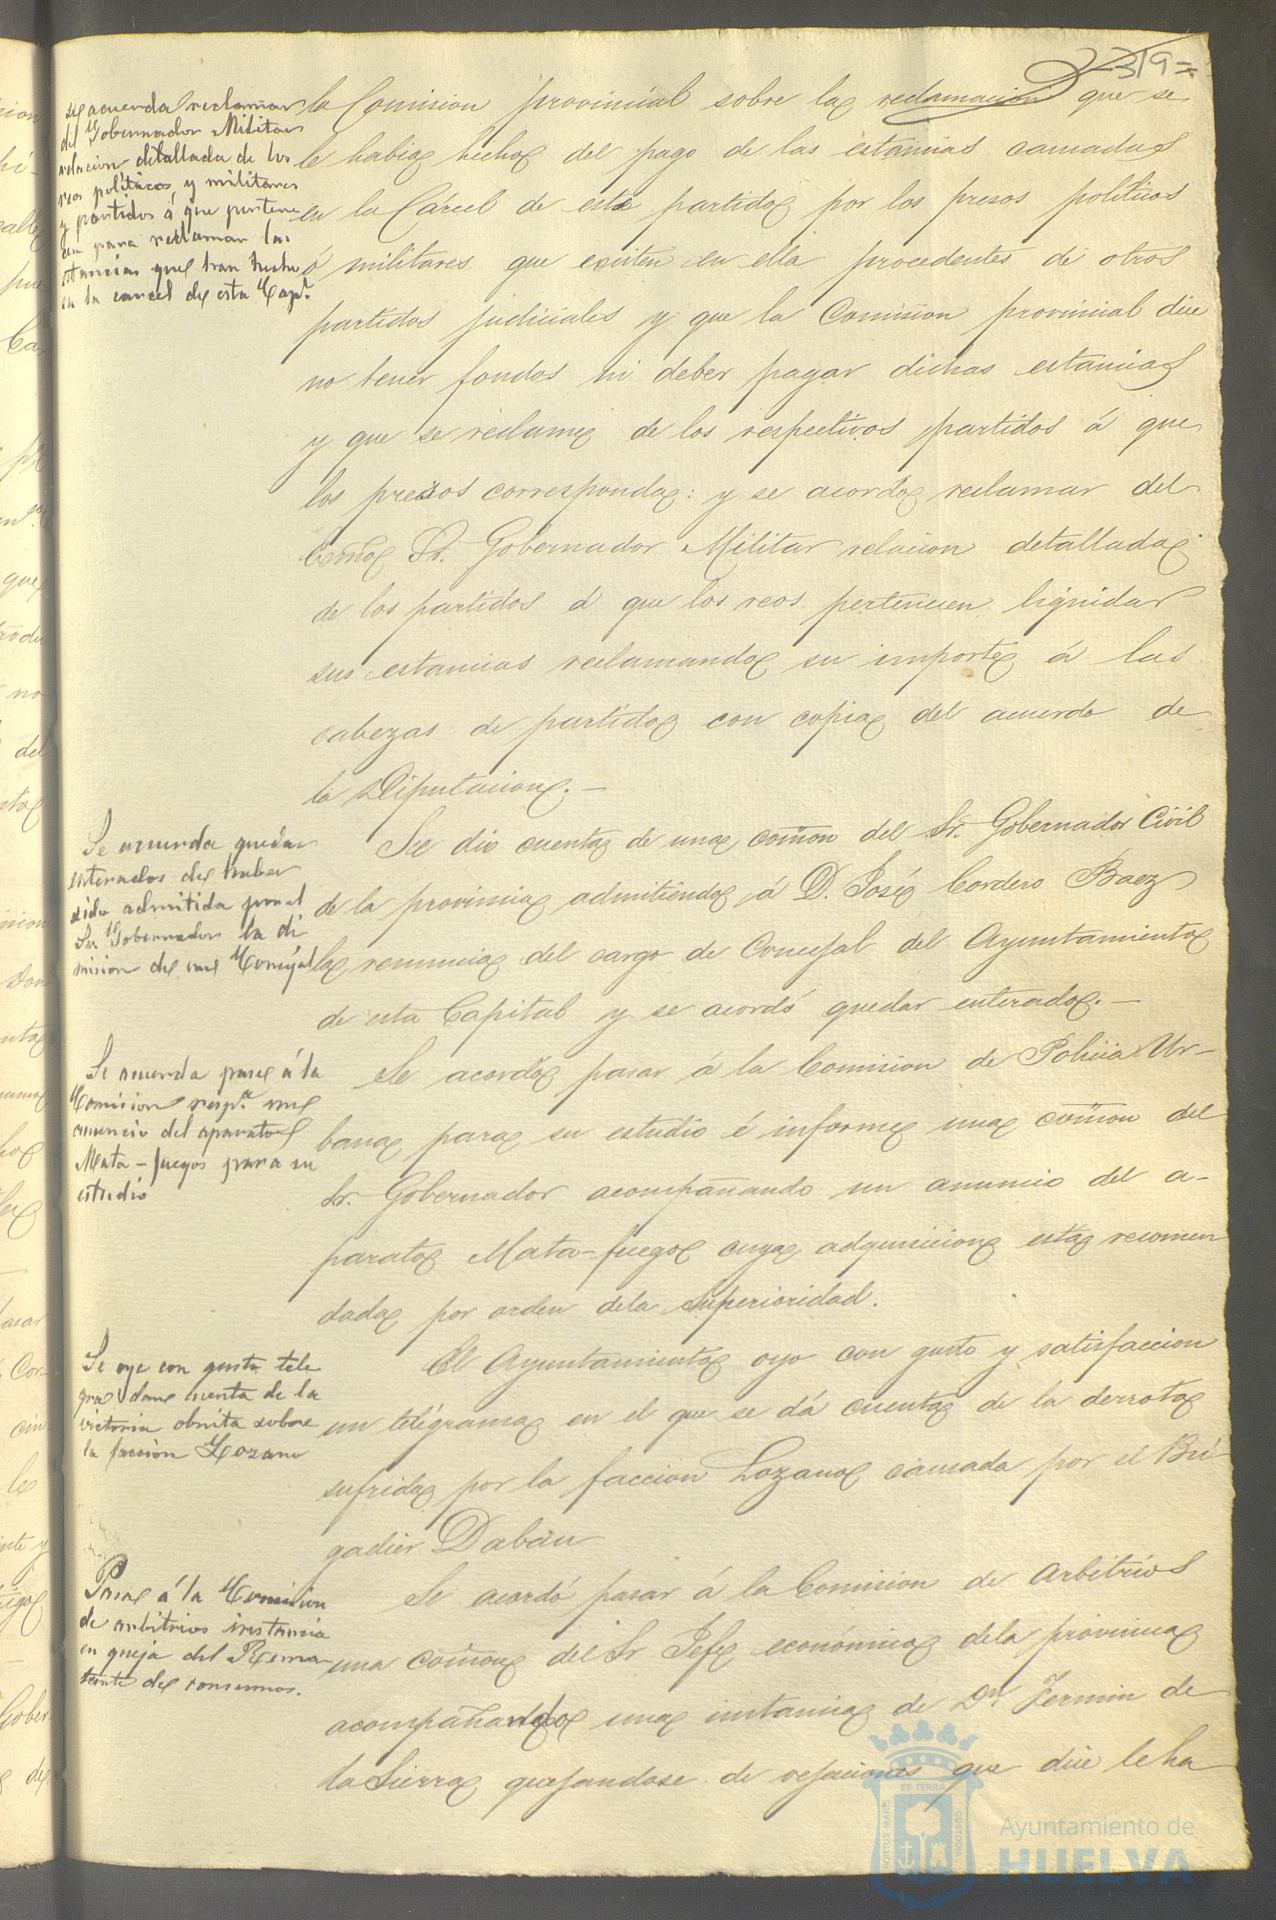 319=
se acuerda reclamar
del Sr Gobernador Militar
relacion detallada de los
reos politicos y militares
y partidos á que pertene
cen para reclamar las
estancias que han hecho
en la carcel de esta Capl.
la Comision provincial sobre la reclamacion que se
le habia hecho del pago de las estancias causadas
en la Cárcel de este partido por los presos politicos
ó militares que existen en ella procedentes de otros
partidos judiciales y que la Comision provincial dice
no tener fondos ni deber pagar dichas estancias
y que se reclame de los respectivos partidos á que
los presos corresponda: y se acordo reclamar del
Excmo Sr. Gobernador Militar relacion detallada
de los partidos á que los reos pertenecen liquidar
sus estancias reclamando su importe á las
cabezas de partido con copia del acuerdo de
la Diputacion.—
Se acuerda quedar
enterados de haber
sido admitida por el
Sr. Gobernador la di
mision de un Concejal
Se dio cuenta de una comon del Sr. Gobernador Civil
de la provincia admitiendo á D. José Cordero Baez
la renuncia del cargo de Concejal del Ayuntamiento
de esta Capital y se acordó quedar enterado.—
Se acuerda pase á la
Comision respva una
anuncio del aparato
Mata-fuegos para su
estudio
Se acordo pasar á la Comision de Policia Ur-
bana para su estudio é informe una comon del
Sr. Gobernador acompañando un anuncio del a-
parato Mata-fuego cuya adquisicion esta recomen
dada por orden dela Superioridad.
Se oye con gusto tele
grama dando cuenta de la
victoria obnita sobre
la faccion Lozano
El Ayuntamiento oyo con gusto y satisfaccion
un telégrama en el que se dá cuenta de la derrota
sufrida por la faccion Lozano causada por el Bri
gadier Daban
Pase á la Comision
de arbitrios instancia
en queja del Rema
tante de consumos.
Se acordó pasar á la Comision de Arbitrios
una comon del Sr Jefe económico dela provincia
acompañando una instancia de Dn Fermin de
la Sierra quejandose de vejaciones que dice le ha
ET TERRA
PORTUS MARIS
CUSTODIA
Ayuntamiento de
HUELVA